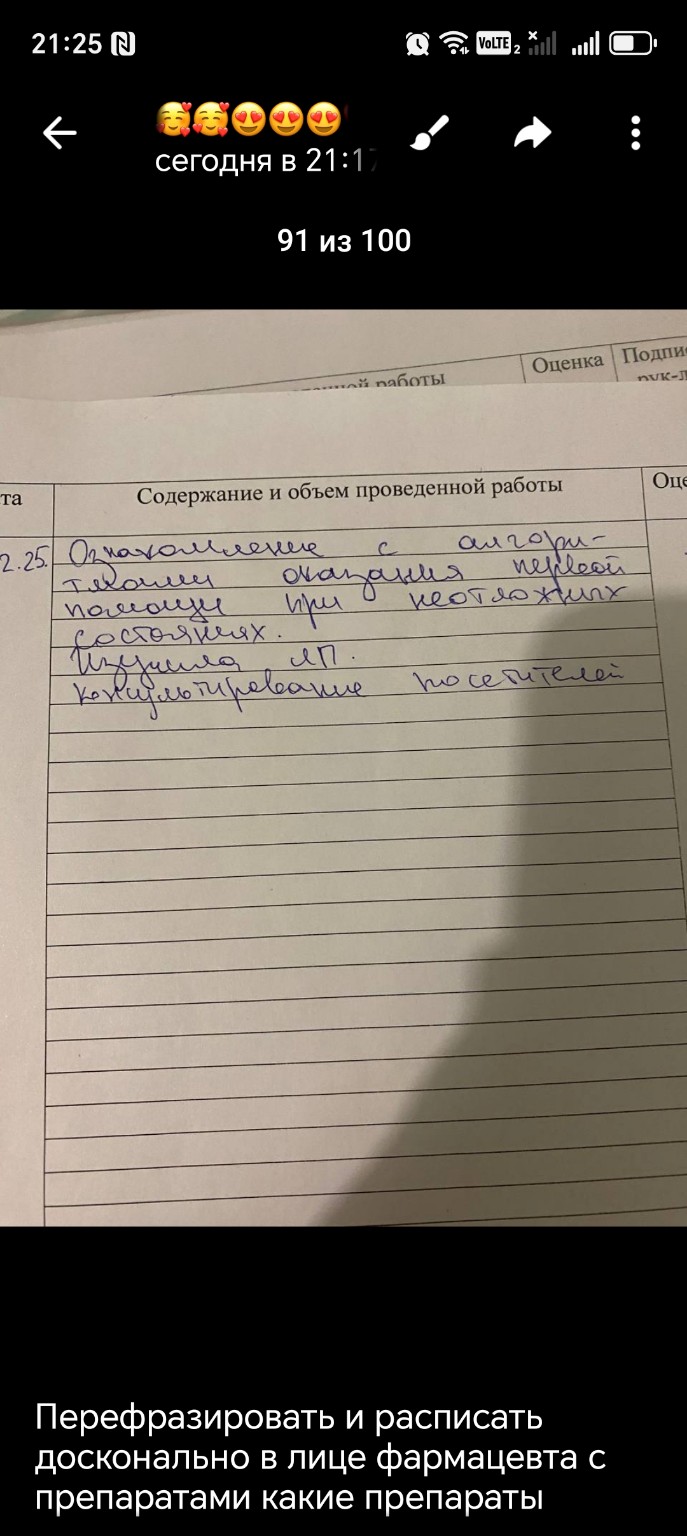 21:25
VoLTE 2
🥰🥰😍😍😍
сегодня в 21:17
91 из 100
ной работы
Оценка
Подпи
рук-л
та
Содержание и объем проведенной работы
Оце
2.25.
Ознакомление с алгори-
тмами оказания первой
помощи при неотложных
состояниях.
Изучила ЛП.
Консультирование посетителей
Перефразировать и расписать
досконально в лице фармацевта с
препаратами какие препараты